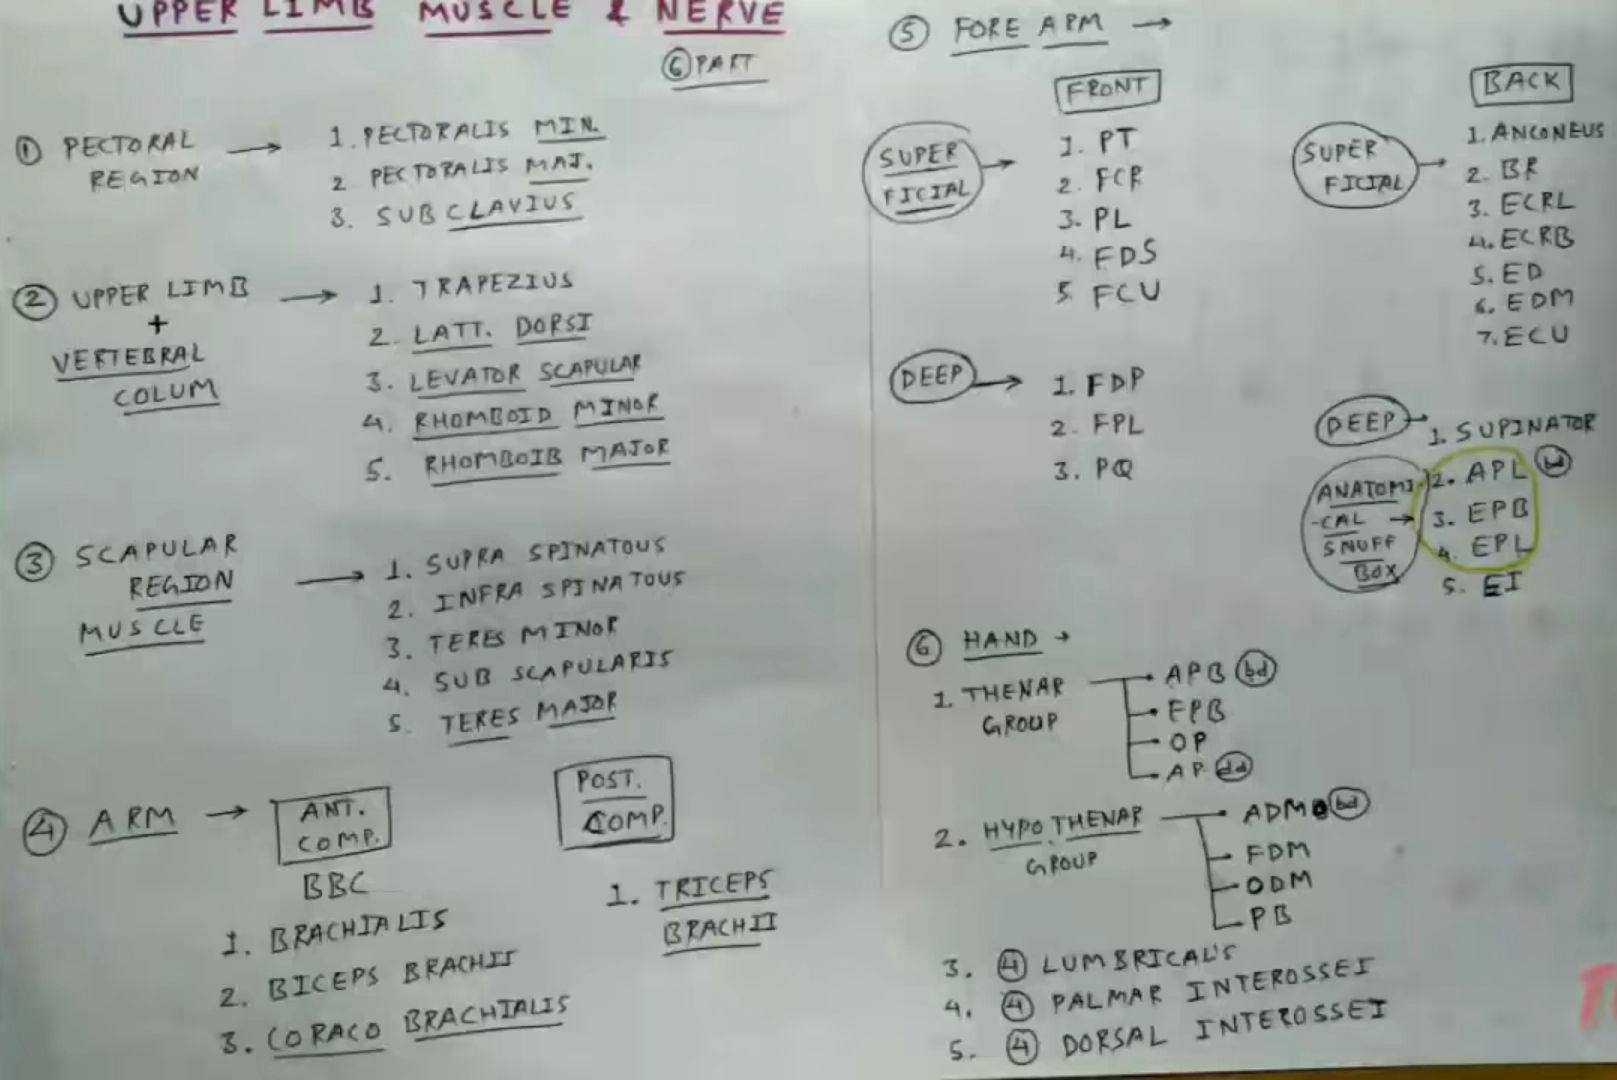 UPPER LIMB MUSCLE & NERVE
⑥ PART
① PECTORAL REGION →
1. PECTORALIS MIN.
2 PECTORALIS MAJ.
3. SUBCLAVIUS
② UPPER LIMB
+
VERTEBRAL
COLUM
→
1. TRAPEZIUS
2. LATT. DORSI
3. LEVATOR SCAPULAR
4. RHOMBOID MINOR
5. RHOMBOIB MAJOR
③ SCAPULAR
REGION
MUSCLE
→
1. SUPRA SPINATOUS
2. INFRA SPINATOUS
3. TERES MINOR
4. SUB SCAPULARIS
5. TERES MAJOR
④ ARM →
ANT.
COMP.
BBC
1. BRACHIALIS
2. BICEPS BRACHII
3. CORACO BRACHIALIS
POST.
COMP.
1. TRICEPS
BRACHII
⑤ FORE ARM →
FRONT
SUPER
FICIAL →
1. PT
2. FCR
3. PL
4. FDS
5 FCU
DEEP →
1. FDP
2. FPL
3. PQ
BACK
SUPER
FICIAL →
1. ANCONEUS
2. BR
3. ECRL
4. ECRB
5. ED
6. EDM
7. ECU
DEEP →
1. SUPINATOR
2. APL bd
3. EPB
4. EPL
5. EI
ANATOMI
-CAL →
SNUFF
BOX
⑥ HAND →
1. THENAR
GROUP
APB bd
FPB
OP
AP dd
2. HYPOTHENAR
GROUP
ADM bd
FDM
ODM
PB
3. ④ LUMBRICAL'S
4. ④ PALMAR INTEROSSEI
5. ④ DORSAL INTEROSSEI